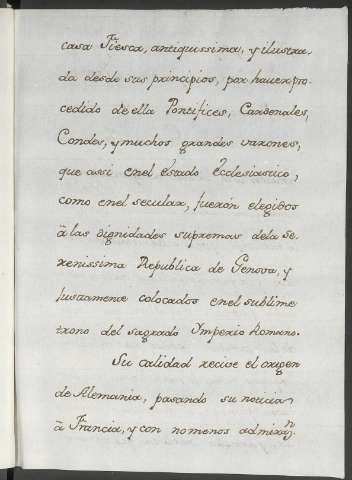 casa Fiesca, antiquissima, y ilustra-
da desde sus principios, por haver pro-
cedido de ella Pontifices, Cardenales,
Condes, y muchos grandes varones,
que assi enel estado Ecclesiastico,
como enel secular, fuerón elegidos
â las dignidades supremas dela Se-
renissima Republica de Genova, y
justamente colocados enel sublime
trono del sagrado Ymperio Romano.
Su calidad recive el origen
de Alemania, pasando su noticia
â Francia, y con nomenos admiraⁿ.